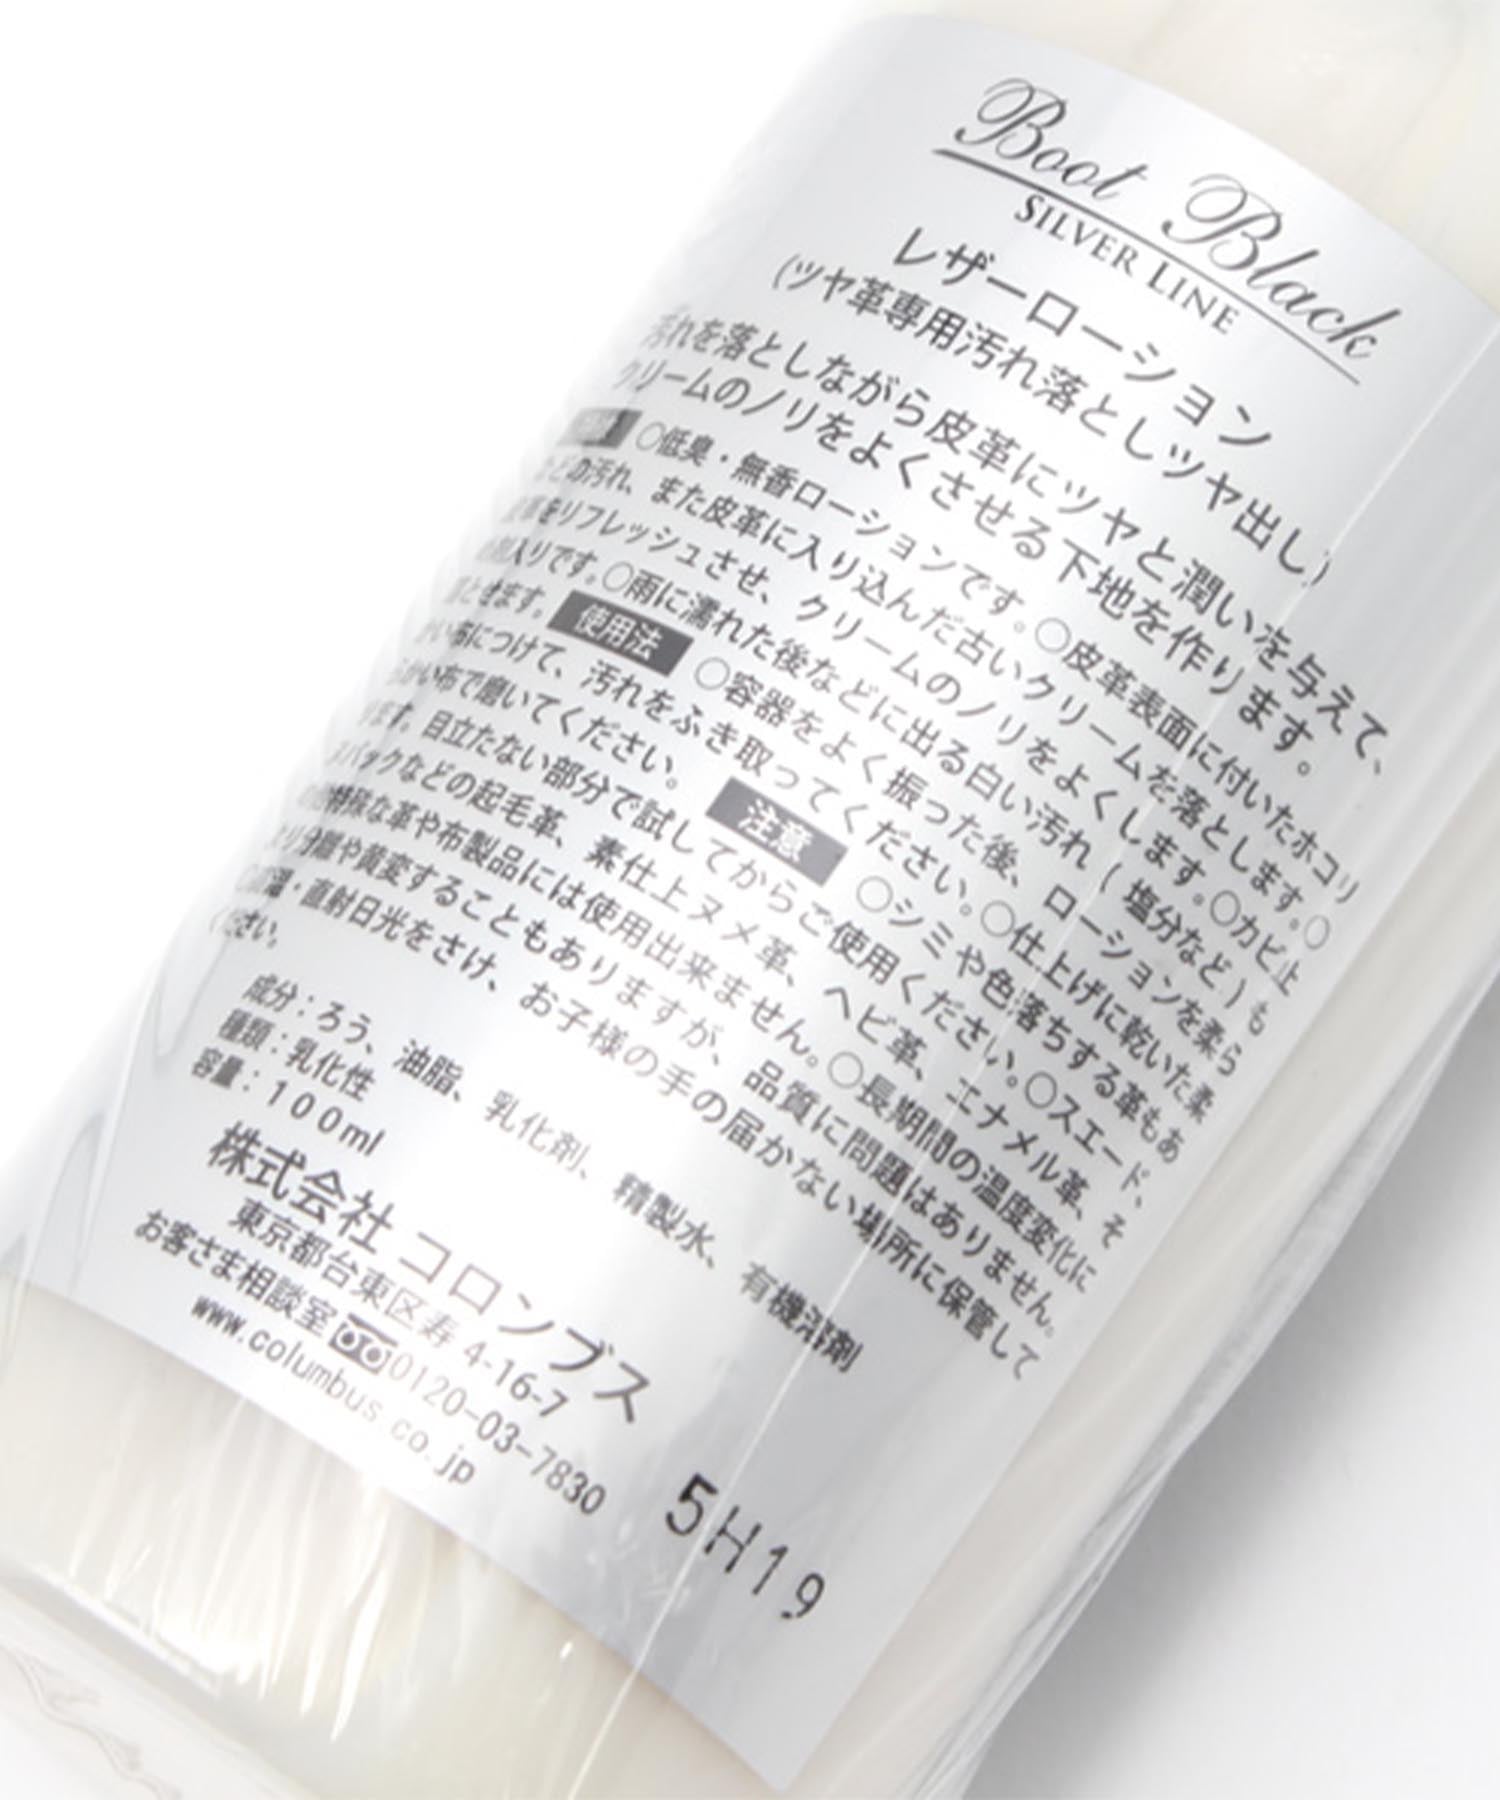 Boot Black
SILVER LINE
レザーローション
(ツヤ革専用汚れ落としツヤ出し)
汚れを落としながら皮革にツヤと潤いを与えて、
クリームのノリをよくさせる下地を作ります。
○低臭・無香ローションです。○皮革表面に付いたホコリ
などの汚れ、また皮革に入り込んだ古いクリームを落とします。○
皮革をリフレッシュさせ、クリームのノリをよくします。○カビ止
め剤入りです。○雨に濡れた後などに出る白い汚れ(塩分など)も
落とせます。 使用法 ○容器をよく振った後、ローションを柔ら
かい布につけて、汚れをふき取ってください。○仕上げに乾いた柔
らかい布で磨いてください。 注意 ○シミや色落ちする革もあ
ります。目立たない部分で試してからご使用ください。○スエード、
ヌバックなどの起毛革、素仕上ヌメ革、ヘビ革、エナメル革、そ
の他特殊な革や布製品には使用出来ません。○長期間の温度変化に
より分離や黄変することもありますが、品質に問題はありません。
○高温・直射日光をさけ、お子様の手の届かない場所に保管して
ください。
成分:ろう、油脂、乳化剤、精製水、有機溶剤
種類:乳化性
容量:100ml
株式会社 コロンブス
東京都台東区寿 4-16-7
お客さま相談室 0120-03-7830
www.columbus.co.jp
5H19